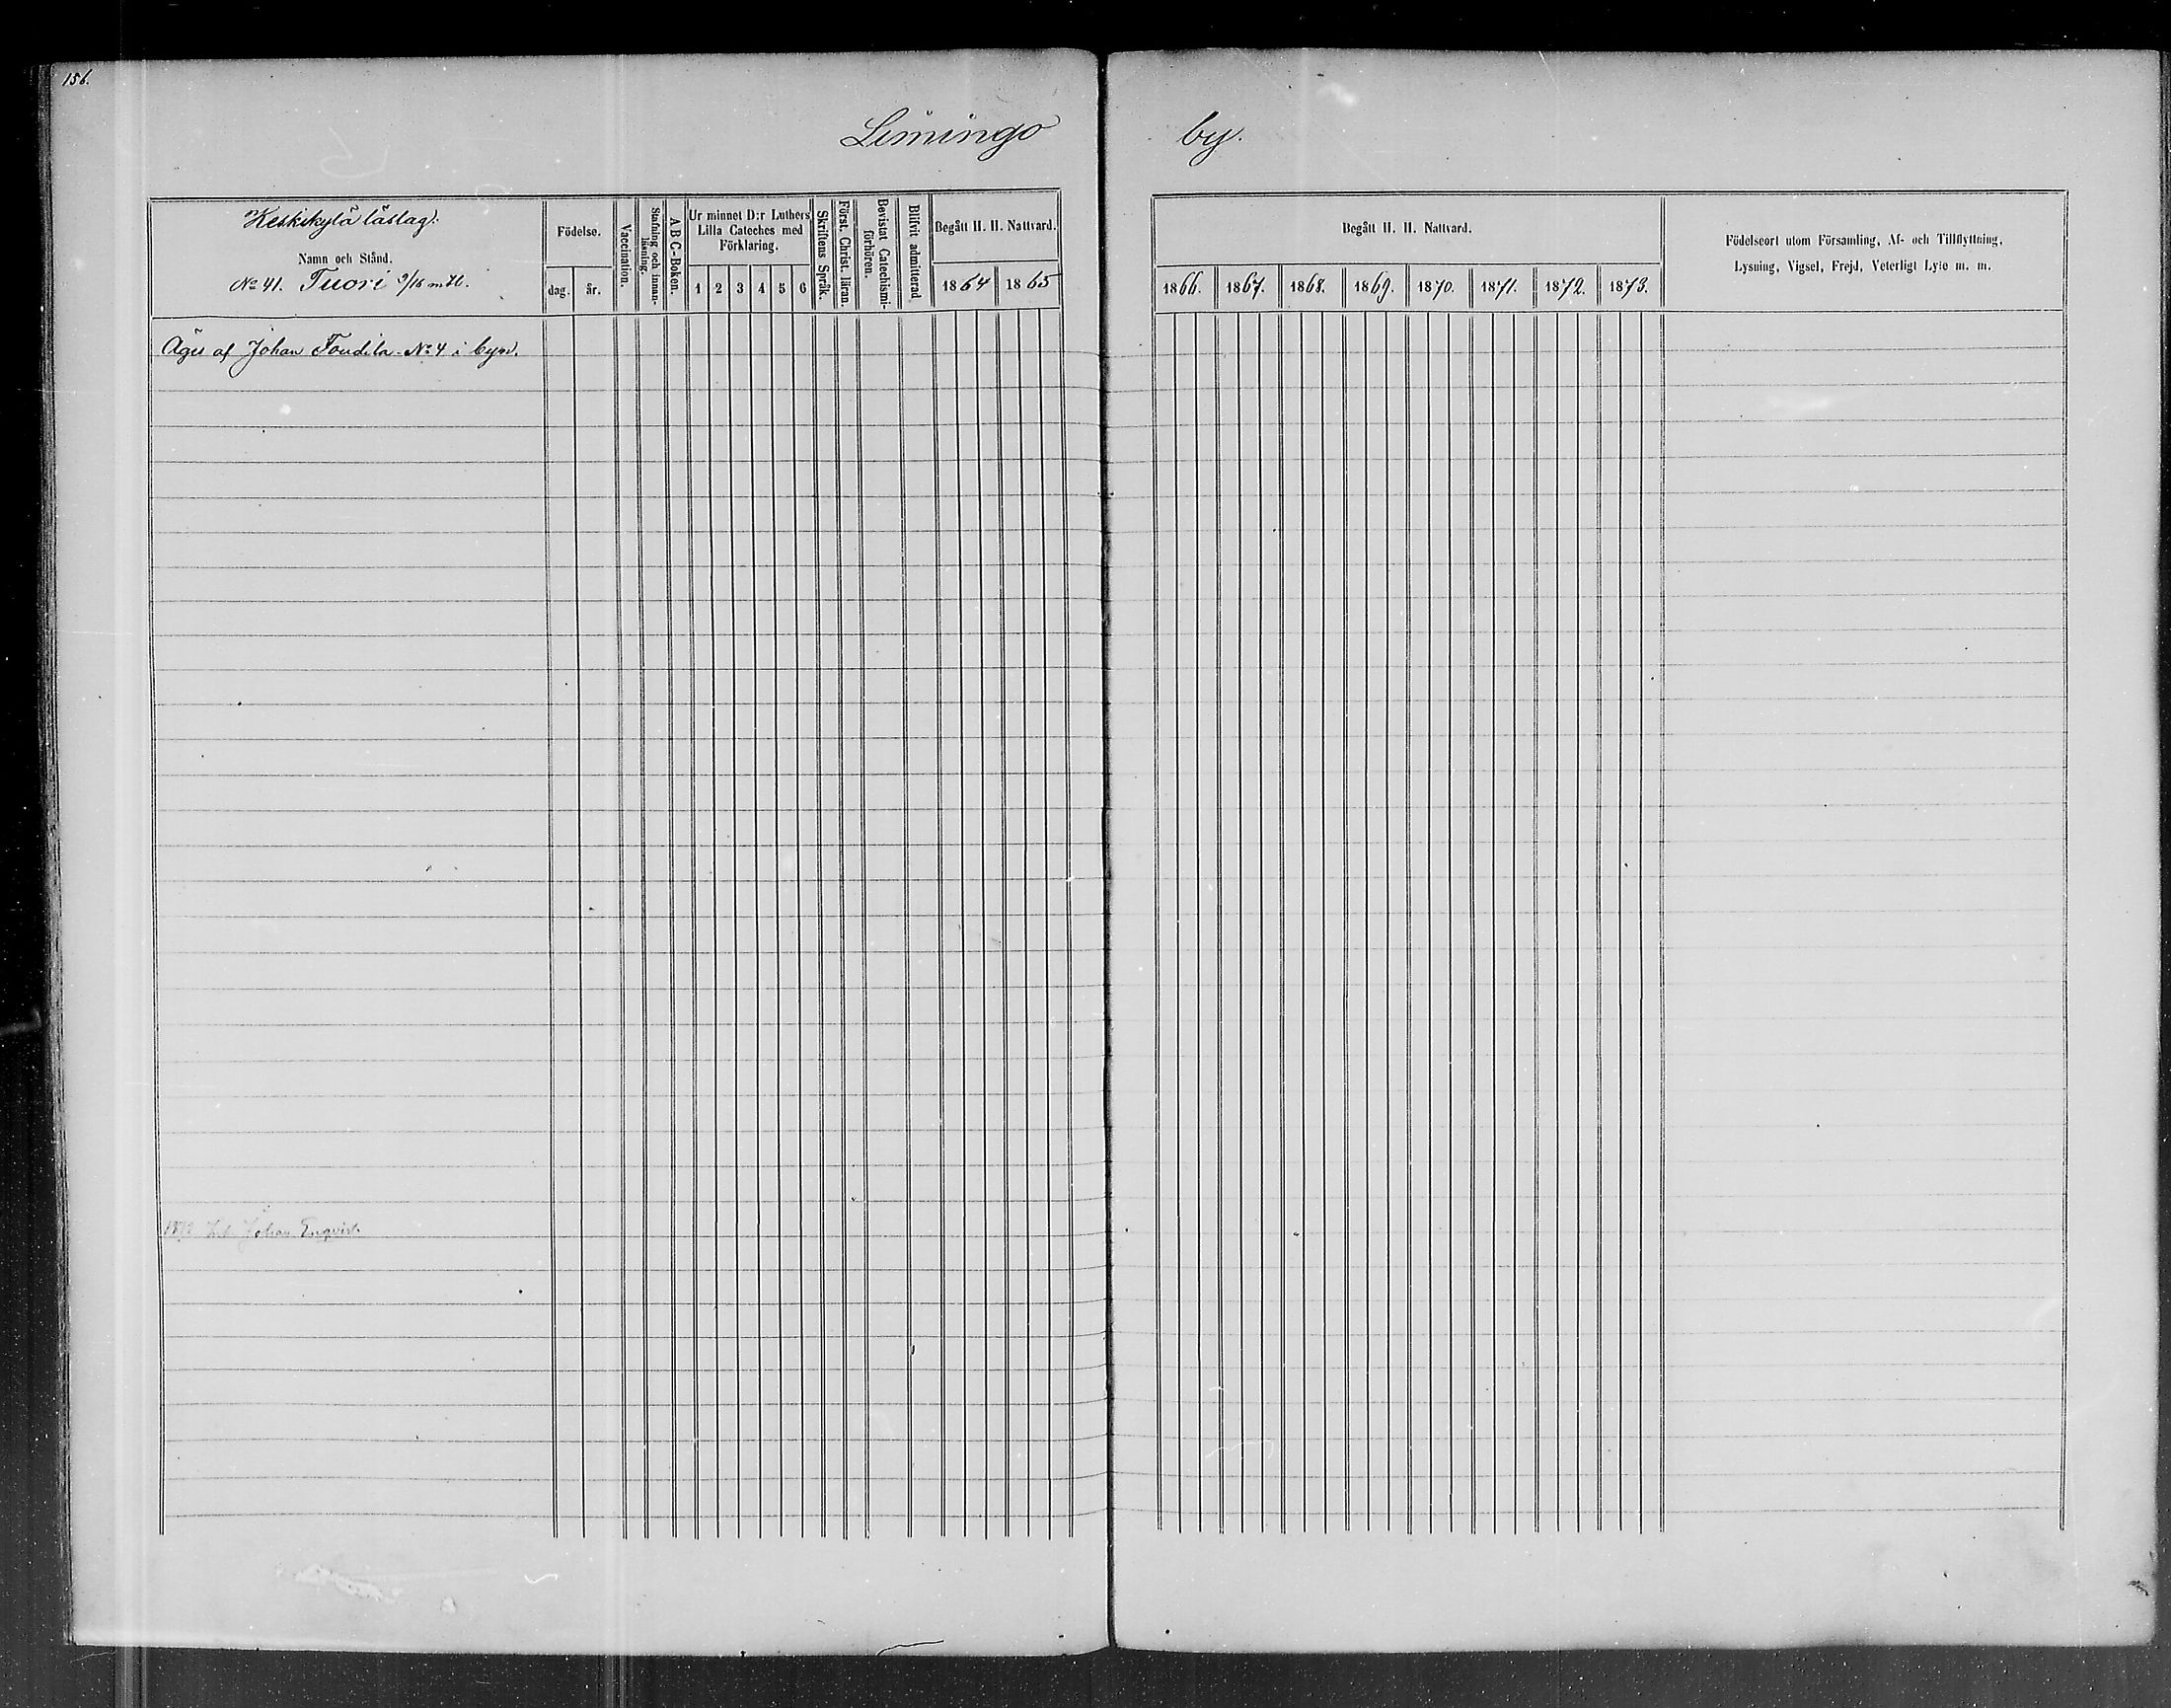 156.
Limingo by.
Keskikylä läslag.
Namn och Stånd.
No 41. Tuori 9/16 mtl.
Födelse.
dag. år.
Vaccination.
Stafning och innan-
läsning.
A B C-Boken.
Ur minnet D:r Luthers
Lilla Cateches med
Förklaring.
1 2 3 4 5 6
Skriftens Språk.
Först. Christ. läran.
Bevistat Catechismi-
förhören.
Blifvit admitterad
Begått H. H. Nattvard.
1864 1865
Begått H. H. Nattvard.
1866. 1867. 1868. 1869. 1870. 1871. 1872. 1873.
Födelseort utom Församling, Af- och Tillflyttning,
Lysning, Vigsel, Frejd, Veterligt Lyte m. m.
Äges af Johan Toudila No 4 i byn.
Johan Enqvist